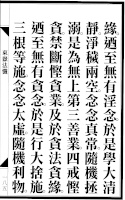 緣迺至無有淫念於是學大淸
靜淨穢兩空念念真常隨機拯
溺是為無上第三善業四戒慳
貪禁斷慳貪業及於貪法貪緣
迺至無有貪念於是行大捨施
三根等施念念太虛隨機利物